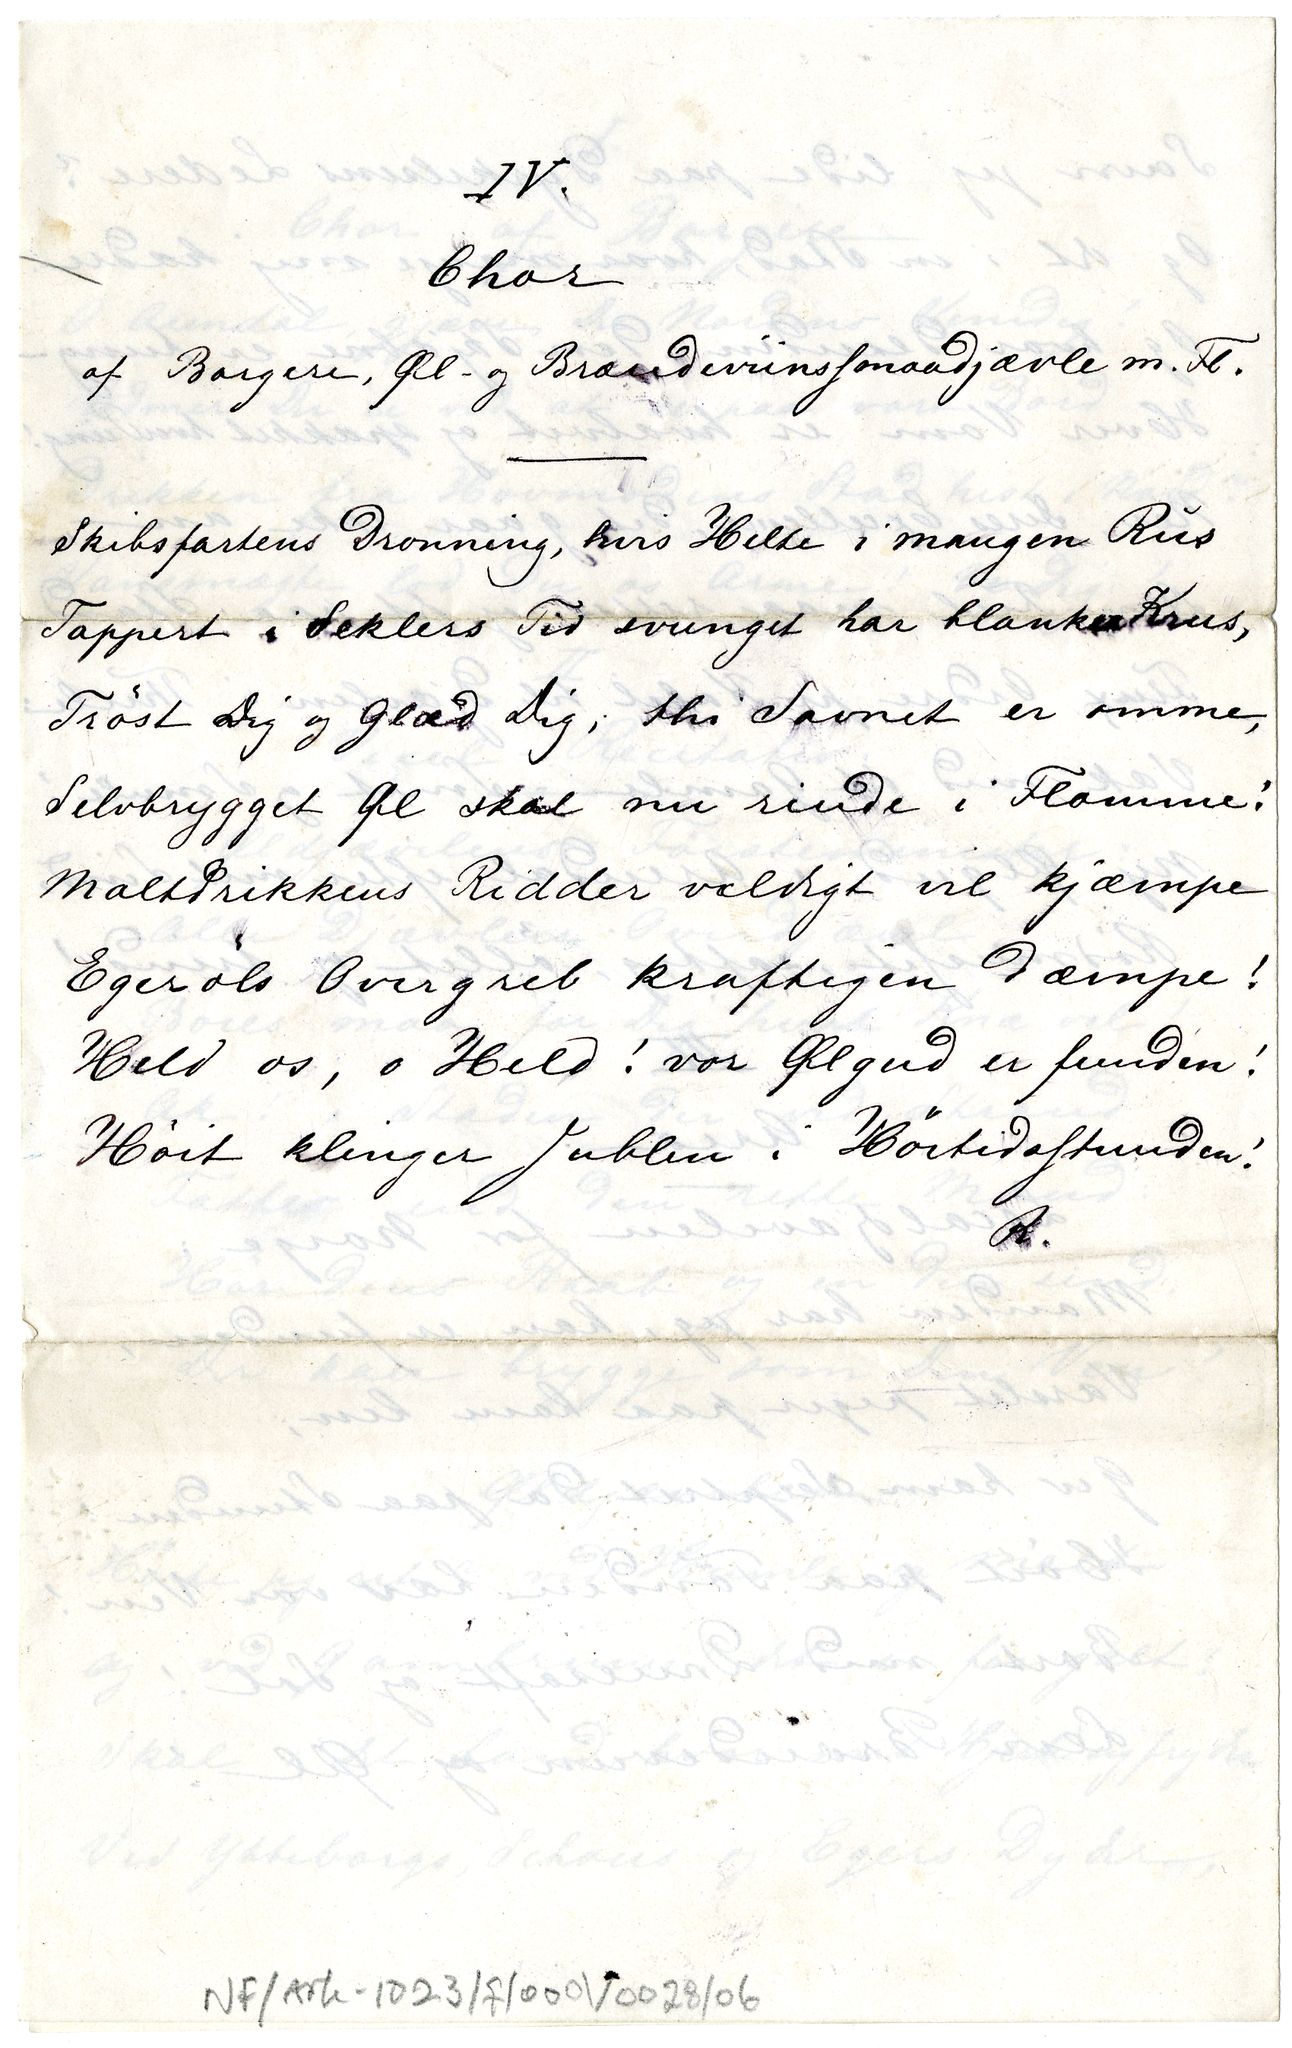 IV.
Chor
af Borgere, Øl- og Brændeviinssmaadjævle m. Fl.
Skibsfartens Dronning, hvis Helte i mangen Rüs
Tappert i Seklers Tid svunget har blanke Krus,
Tröst Dig og Glæd Dig, thi Savnet er omme,
Selvbrygget Øl skal nu rinde i Flomme!
Maltdrikkens Ridder veldigt vil kjæmpe
Egeröls Overgreb kraftigen dæmpe!
Held os, o Held! vor Ølgud er funden!
Höit klinger Jublen i Höitidsstunden!
R.
NF/Ark-1023/F/0001/0028/06